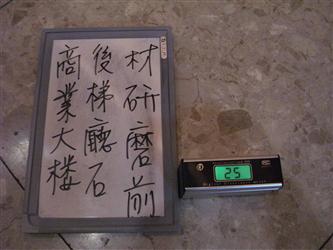 商業大楼
後梯廳石
材研磨前
25